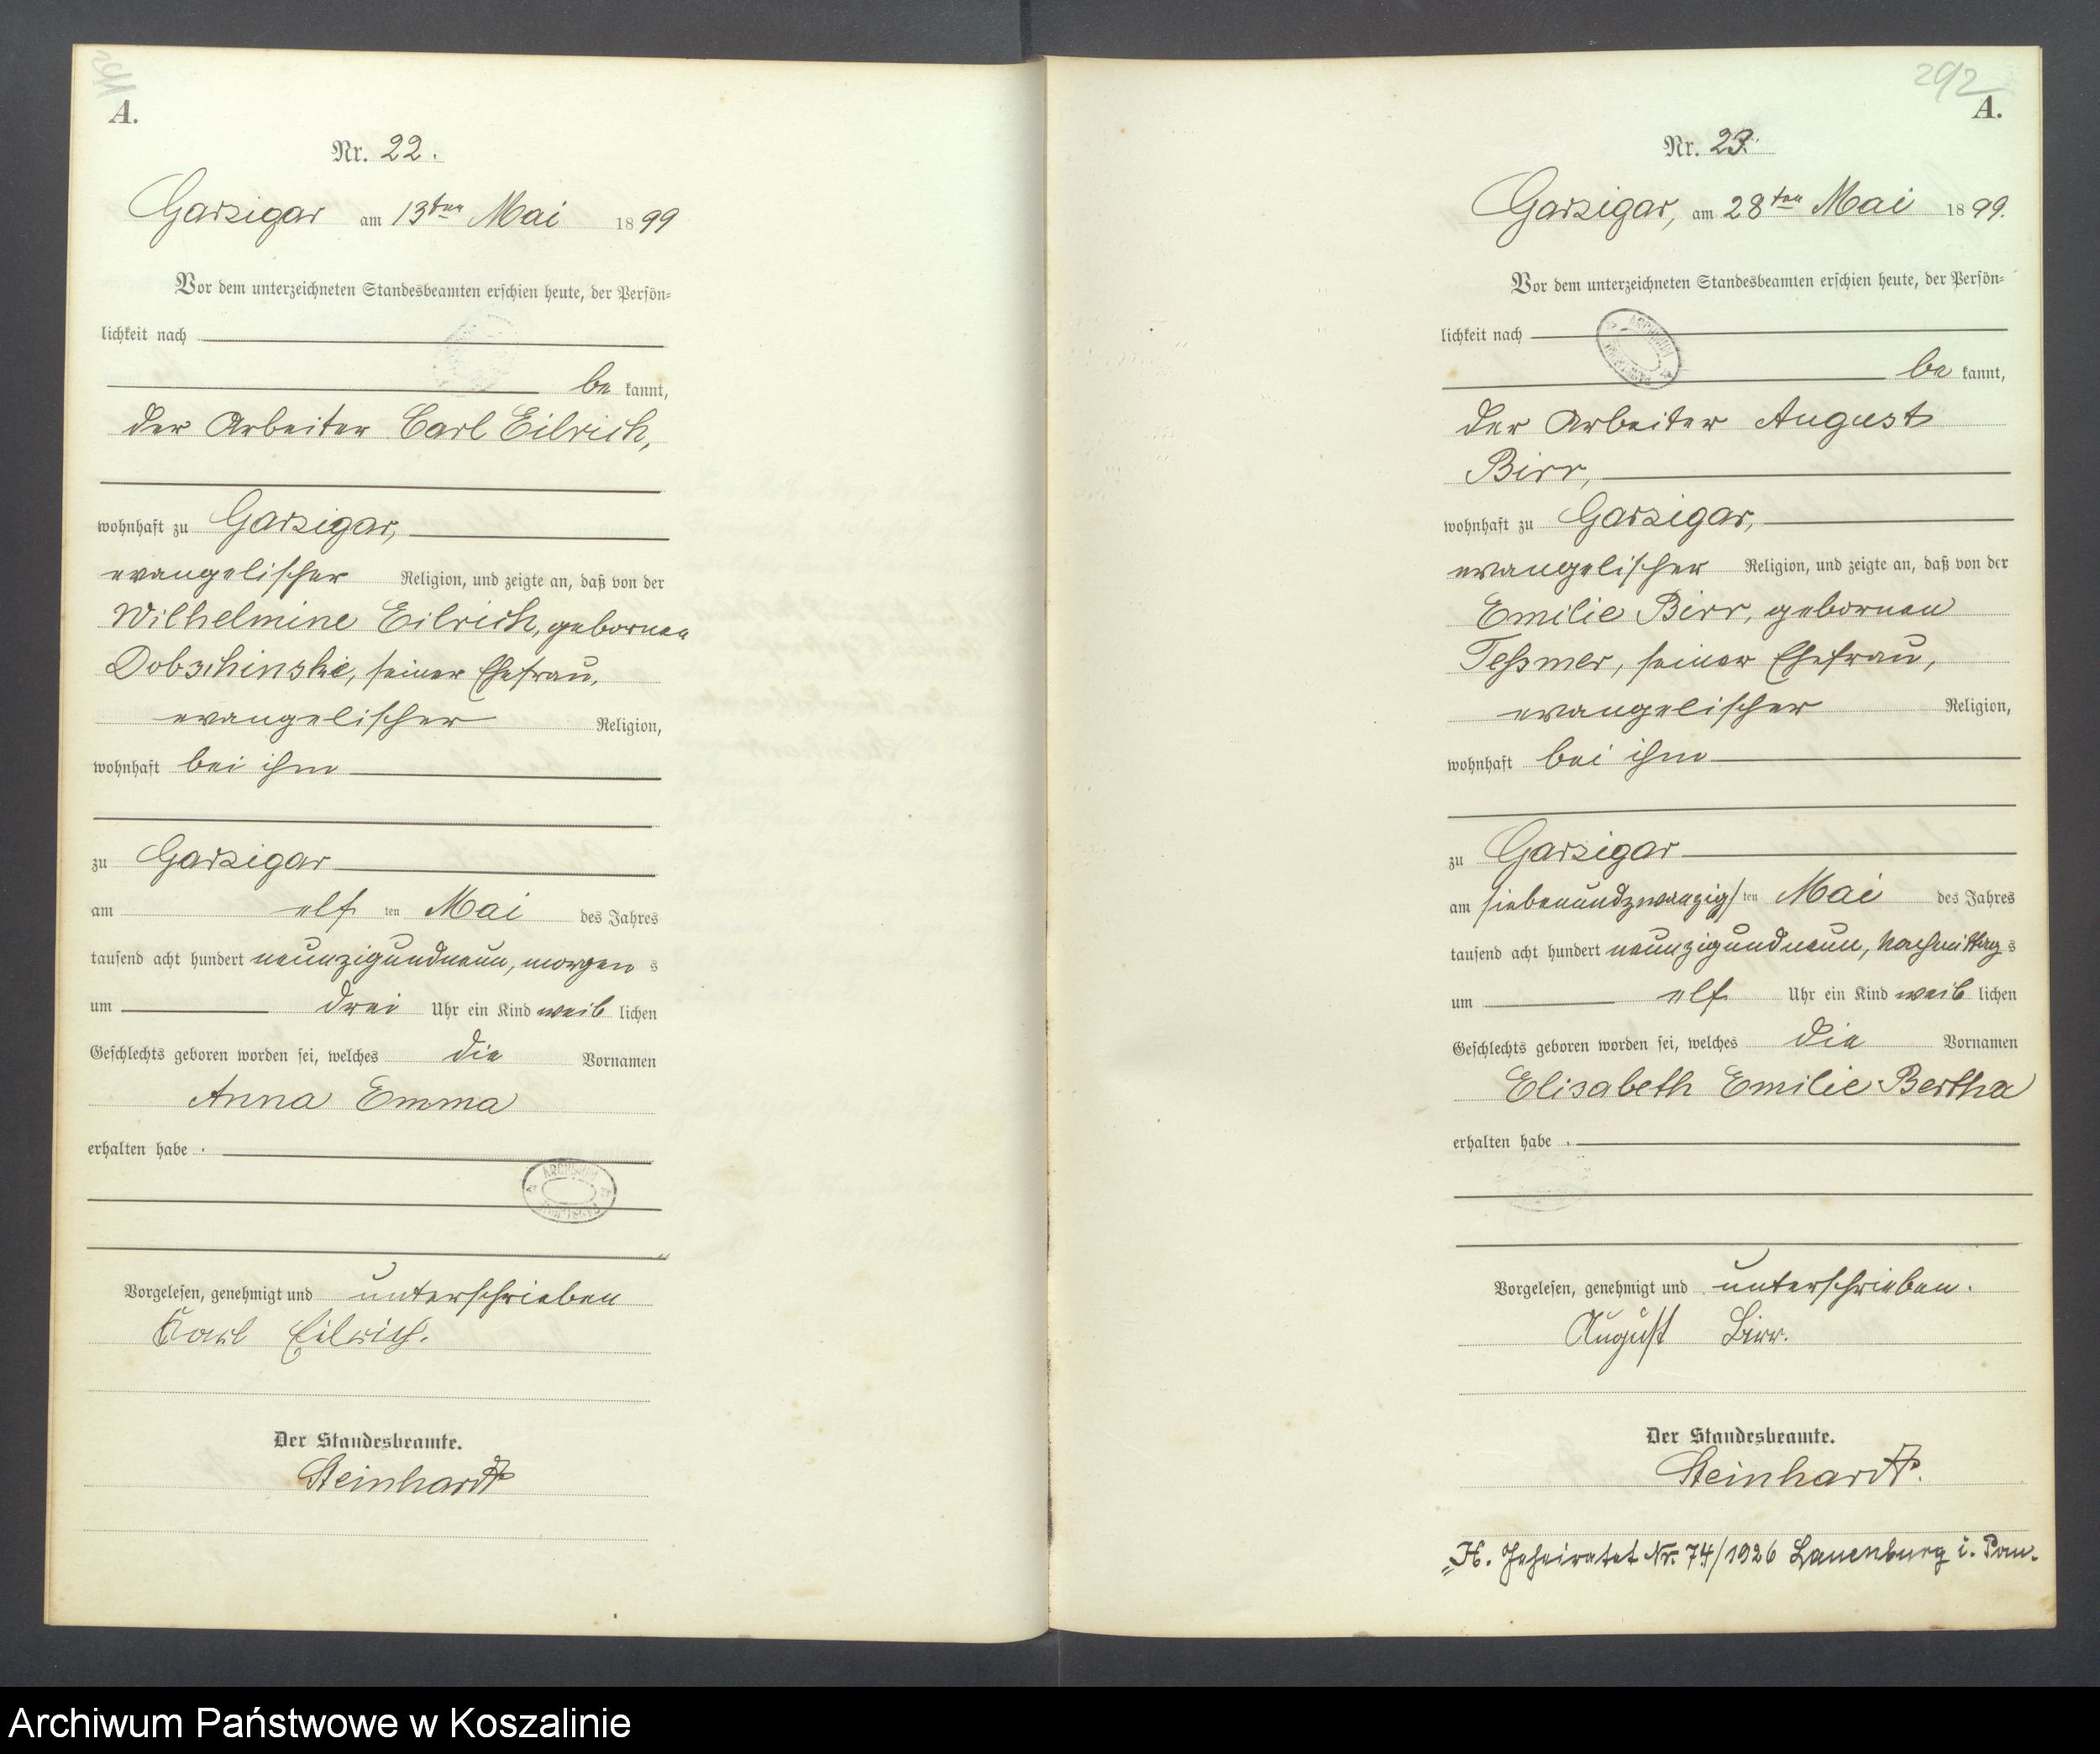 291
A.
Nr. 22.
Garzigar am 13ten Mai 1899
Vor dem unterzeichneten Standesbeamten erschien heute, der Persön-
lichkeit nach
be kannt,
der Arbeiter Carl Eilrich,
wohnhaft zu Garzigar,
evangelischer Religion, und zeigte an, daß von der
Wilhelmine Eilrich, geborenen
Dobschinske, seiner Ehefrau,
evangelischer Religion,
wohnhaft bei ihm
zu Garzigar
am elf ten Mai des Jahres
tausend acht hundert neunzigundneun, morgen s
um drei Uhr ein Kind weib lichen
Geschlechts geboren worden sei, welches die Vornamen
Anna Emma
erhalten habe.
ARCHIWUM
Vorgelesen, genehmigt und unterschrieben
Carl Eilrich.
Der Standesbeamte.
Steinhardt
292
A.
Nr. 23.
Garzigar, am 28ten Mai 1899.
Vor dem unterzeichneten Standesbeamten erschien heute, der Persön-
lichkeit nach
ARCHIWUM
be kannt,
der Arbeiter August
Birr,
wohnhaft zu Garzigar,
evangelischer Religion, und zeigte an, daß von der
Emilie Birr, gebornen
Teßmer, seiner Ehefrau,
evangelischer Religion,
wohnhaft bei ihm
zu Garzigar
am siebenundzwanzigs ten Mai des Jahres
tausend acht hundert neunzigundneun, Nachmittag s
um elf Uhr ein Kind weib lichen
Geschlechts geboren worden sei, welches die Vornamen
Elisabeth Emilie Bertha
erhalten habe.
Vorgelesen, genehmigt und unterschrieben.
August Birr.
Der Standesbeamte.
Steinhardt.
H. Geheiratet Nr. 74/1926 Lauenburg i. Pom.
Archiwum Państwowe w Koszalinie